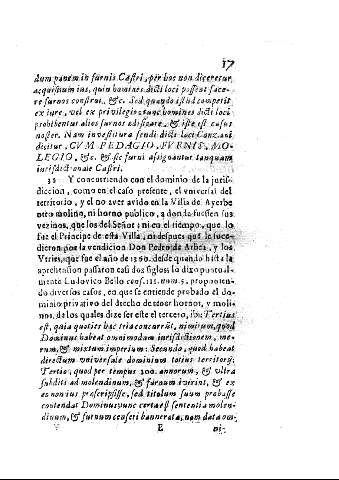 17
dum panem in furnis Castri, per hoc non diceretur
acquisitum ius, quin homines dicti loci possent face-
re furnos construi, &c. sed quando istud competit
ex iure, vel ex privilegio, tunc homines dicti loci
prohibentur alios furnos ædificare, & iste est casus
noster. Nam investitura feudi dicti loci
dicitur, CVM PEDAGIO, FVRNIS, MO-
LEGIO, &c. & sic furni assignantur tanquam
iurisdictionale Castri.
32 Y concurriendo con el dominio de la jurisdi-
diccion, como en el caso presente, el vniversal del
territorio, y el no aver avido en la Villa de Ayerbe
otro molino, ni horno publico, a donde fuessen sus
vezinos, que los del Señor; ni en el tiempo, que lo
fue el Principe de esta Villa, ni despues que le suce-
dieron por la vendicion Don Pedro de y los
Vrries, que fue el año de 1360. desde quando hasta la
aprehension passaron casi dos siglos lo dixo puntual-
mente Ludovico Bello cons. 122. num. 5. proponien-
do diversos casos, en que se entiende probado el do-
minio privativo del drecho de tener hornos, y moli-
nos, de los quales dize ser este el tercero, ibi: Tertius
est, quia quoties hæc tria concurrũt, nimirum, quod
Dominus habeat omnimodam iurisdictionem, me-
rum, & mixtum imperium: Secundo, quod habeat
directum vniversale dominium totius territorij:
Tertio, quod per tempus 200. annorum, & vltra
subditi ad molendinum, & furnum iverint, & ex
eo non ius præscripsisse, sed titulum suum probasse
contendat Dominus; tunc certa est sententia molen-
dinum, & furnum censeri bannerata, nam data om-
V E ni-